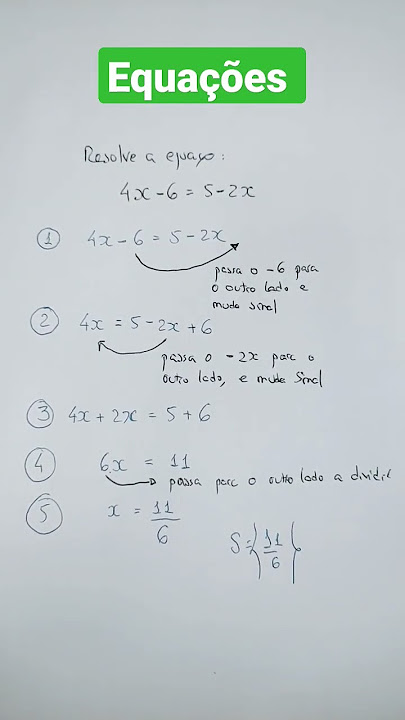 Equações
Resolve a equaço:
4x - 6 = 5 - 2x
① 4x - 6 = 5 - 2x
passa o -6 para
o outro lado e
muda sinal
② 4x = 5 - 2x + 6
passa o -2x para o
outro lado, e muda sinal
③ 4x + 2x = 5 + 6
④ 6x = 11
passa para o outro lado a dividir
⑤ x = 11/6
S = {11/6}